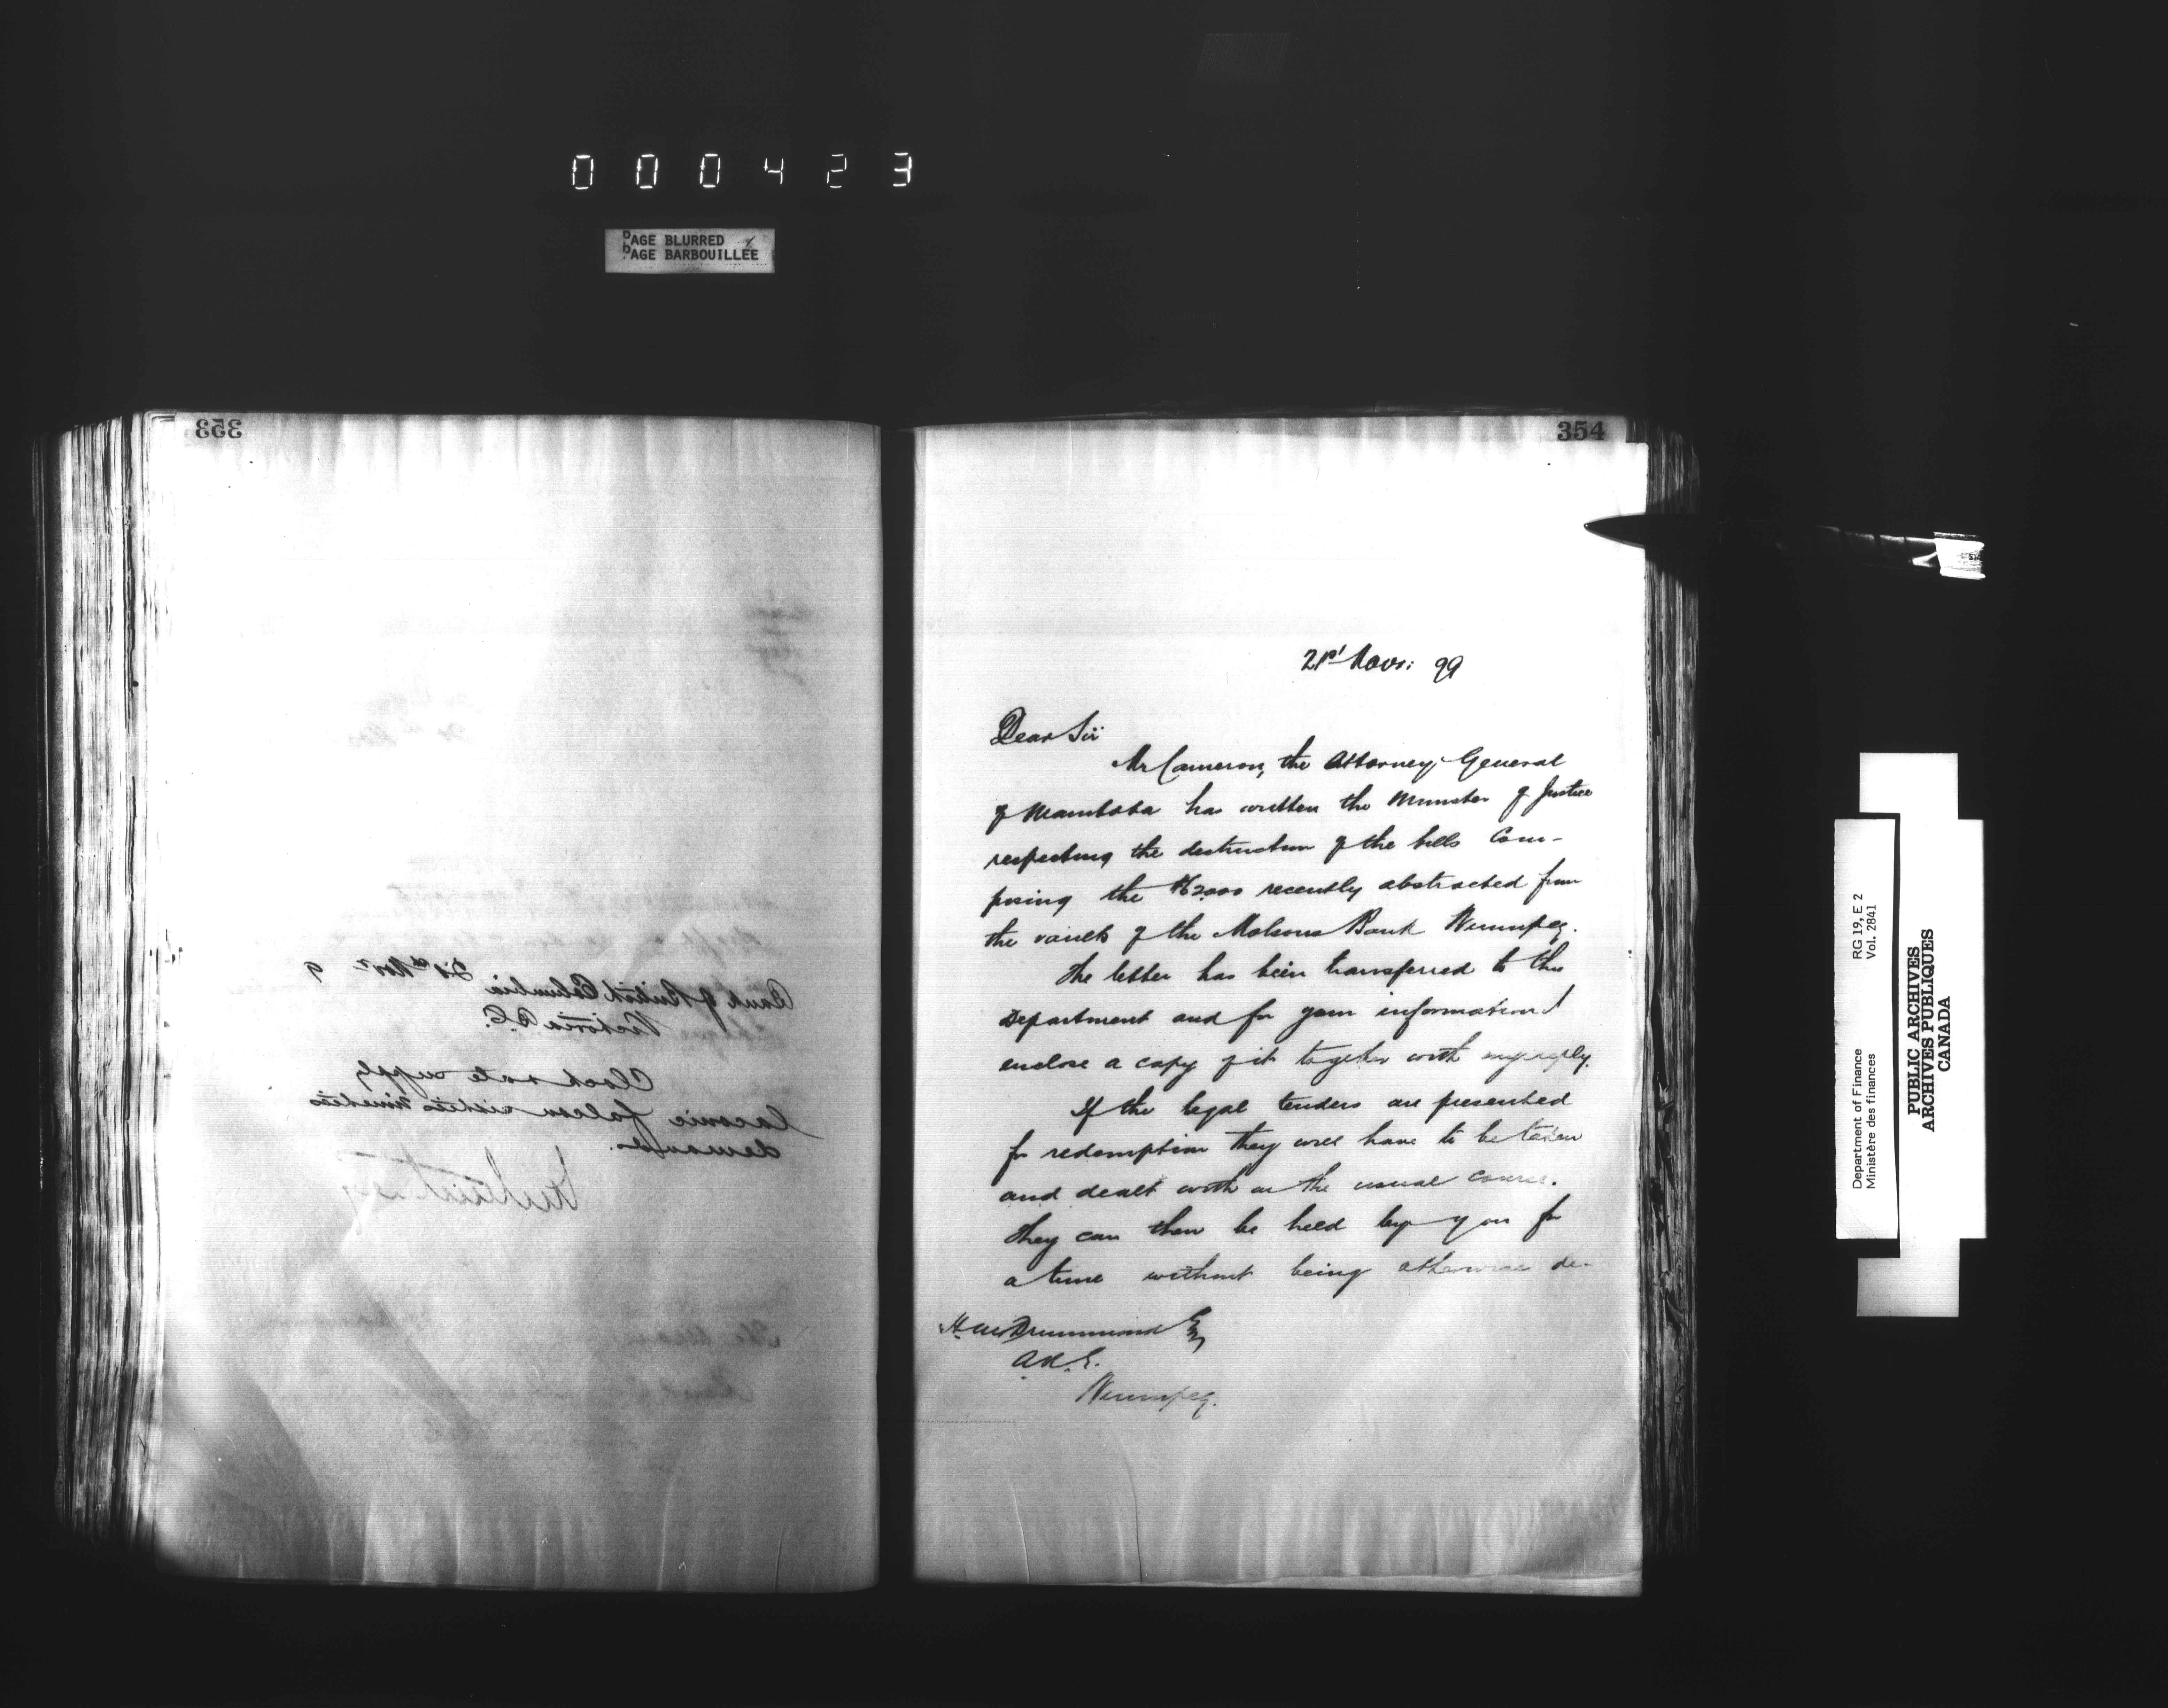 000423
PAGE BLURRED
PAGE BARBOUILLÉE
353
Bank of British Columbia 21st Novr 9
Victoria B.C.
Clock rate supply
laconic falcon
demands.
354
21st Novr: 99
Dear Sir
Mr Cameron, the Attorney General
of Manitoba has written the Minister of Justice
respecting the destruction of the bills Com-
posing the $62,000 recently abstracted from
the vaults of the Molsons Bank Winnipeg.
The letter has been transferred to this
Department and for your information I
enclose a copy of it together with my reply.
If the legal tenders are presented
for redemption they will have to be taken
and dealt with in the usual course.
They can then be held by you for
a time without being otherwise de-
H. M. Drummond Esq
A.R.G.
Winnipeg.
Department of Finance RG 19, E 2
Ministère des finances Vol. 2841
PUBLIC ARCHIVES
ARCHIVES PUBLIQUES
CANADA